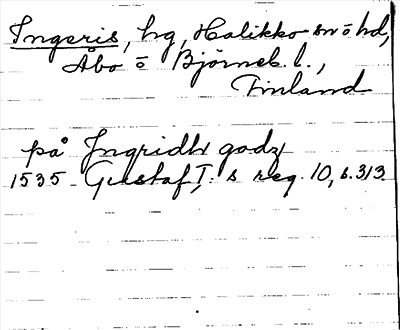 Ingeris, hg, Halikko sn o hd,
Åbo o Björneb. l.,
Finland
på Ingridh godz
1535 Gustaf I. s reg. 10, s. 313